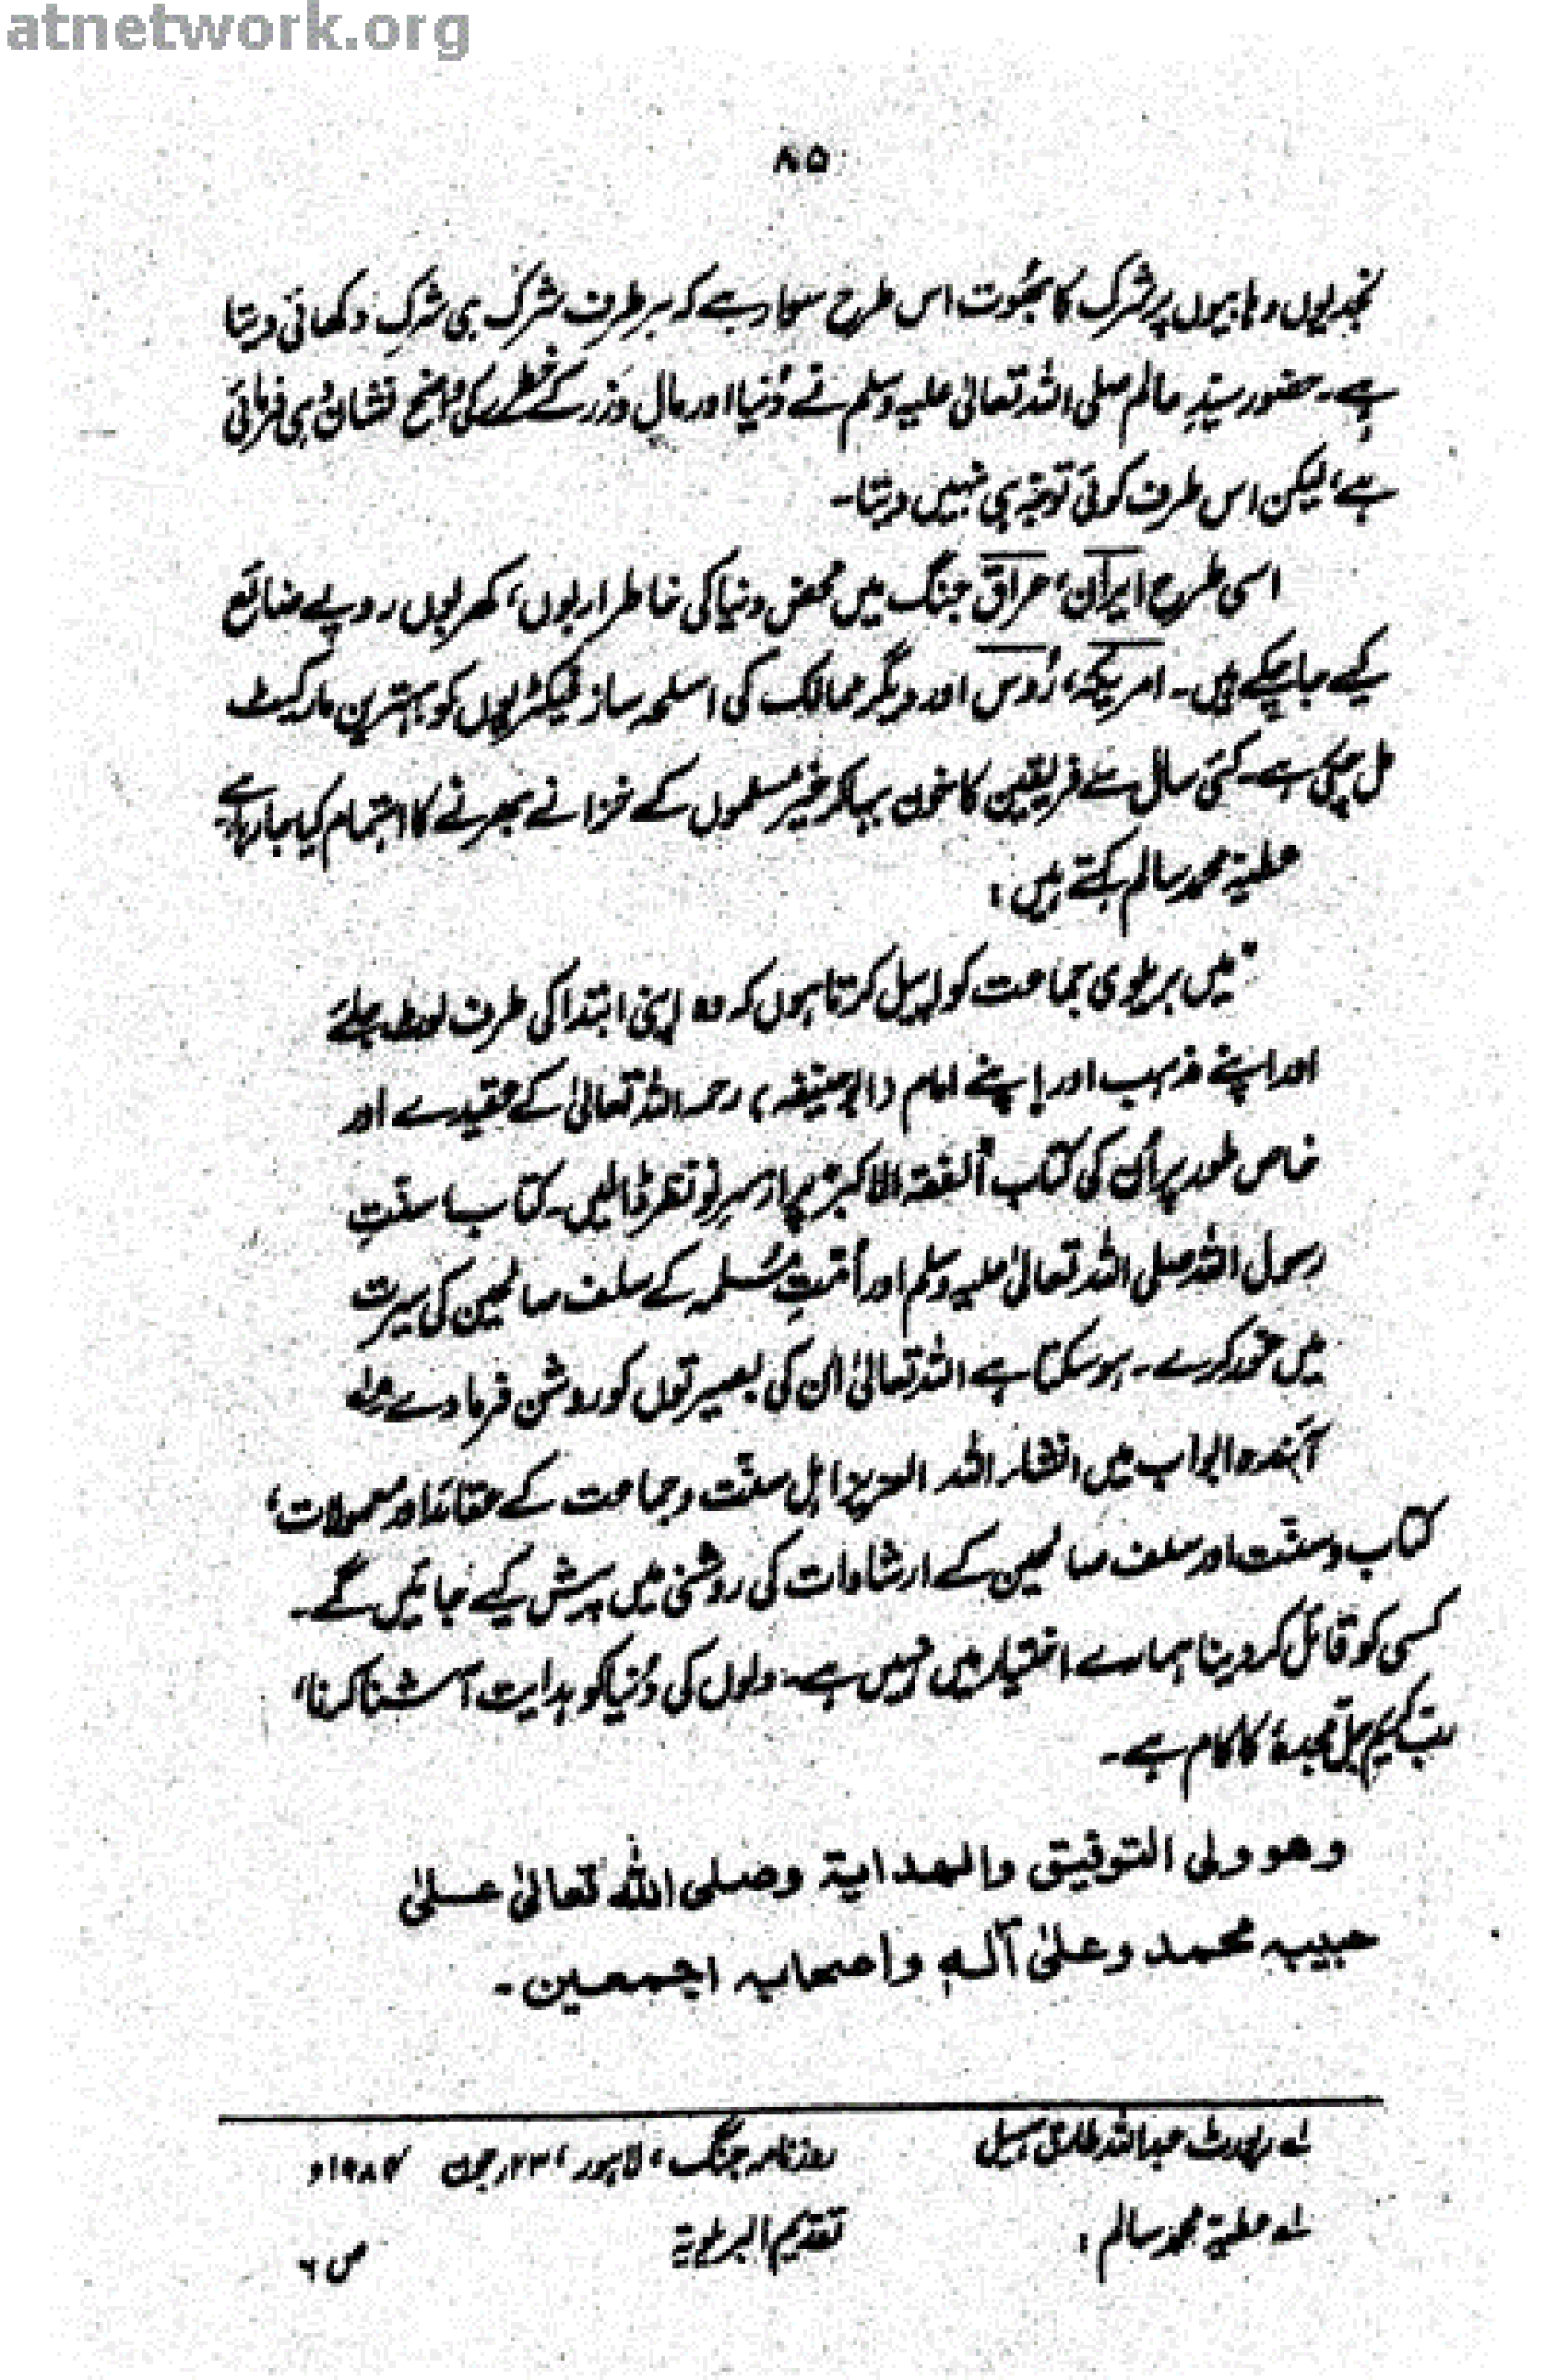 atnetwork.org
۸۵
نجدیوں وہابیوں پر شرک کا بھُوت اس طرح سوار ہے کہ ہر طرف شرک ہی شرک دکھائی دیتا
ہے۔ حضور سیّدِ عالم صلی اللہ تعالیٰ علیہ وسلم نے دُنیا اور مال و زر کے خطرے کی واضح نشان دہی فرمائی
ہے، لیکن اس طرف کوئی توجّہ ہی نہیں دیتا۔
اسی طرح ایران، عراق جنگ میں محض دنیا کی خاطر اربوں، کھربوں روپے ضائع
کیے جا چکے ہیں۔ امریکہ، رُوس اور دیگر ممالک کی اسلحہ ساز فیکٹریوں کو بہترین مارکیٹ
مل چکی ہے۔ کئی سال سے فریقین کا خون بہا کر غیر مسلموں کے خزانے بھرنے کا اہتمام کیا جا رہا ہے۔
عطیۃ محمد سالم کہتے ہیں:
"میں بریلوی جماعت کو اپیل کرتا ہوں کہ وہ اپنی ابتدا کی طرف لوٹ جائے
اور اپنے مذہب اور اپنے امام (ابوحنیفہ) رحمہ اللہ تعالیٰ کے عقیدے اور
خاص طور پر اُن کی کتاب "الفقہ الاکبر" پر از سرِ نو نظر ڈالیں۔ کتاب، سنّتِ
رسول اللہ صلی اللہ تعالیٰ علیہ وسلم اور اُمّتِ مُسلمہ کے سلف صالحین کی سیرت
میں غور کرے۔ ہو سکتا ہے اللہ تعالیٰ ان کی بصیرتوں کو روشن فرما دے
آئندہ ابواب میں انشاء اللہ العزیز اہلِ سنّت و جماعت کے عقائد اور معمولات،
کتاب و سنّت اور سلف صالحین کے ارشادات کی روشنی میں پیش کیے جائیں گے۔
کسی کو قائل کر دینا ہمارے اختیار میں نہیں ہے۔ دلوں کی دُنیا کو ہدایت آشنا کرنا،
ربِّ کریم جلّ مجدہٗ کا کام ہے۔
وهو ولی التوفیق والهدایۃ وصلی اللہ تعالیٰ علیٰ
حبیبہ محمد وعلیٰ آلہٖ واصحابہ اجمعین۔
لہ رپورٹ عبداللہ طارق سہیل روزنامہ جنگ، لاہور، ۲۳ر جون ۱۹۸۷ء
لہ عطیۃ محمد سالم: تقدیم البریلویۃ ص ۶